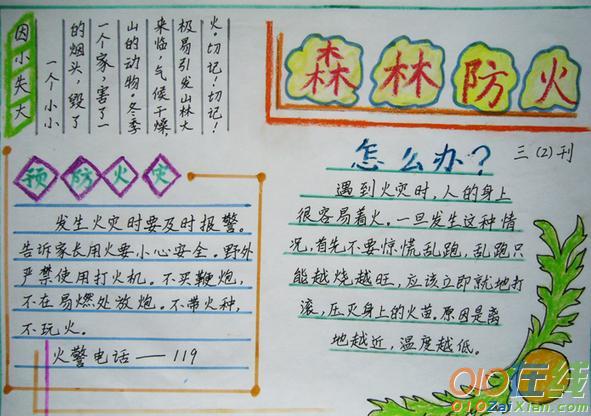 因小失大
一个小小
的烟头，毁了
一个家，害了一
山的动物。冬季
来临，气候干燥
极易引发山林大
火。切记！切记！
森林防火
三(2)刊
预防火灾
发生火灾时要及时报警。
告诉家长用火要小心安全。野外
严禁使用打火机。不买鞭炮，
不在易燃处放炮。不带火种，
不玩火。
火警电话——119
怎么办？
遇到火灾时，人的身上
很容易着火。一旦发生这种情
况，首先不要惊慌乱跑，乱跑只
能越烧越旺，应该立即就地打
滚，压灭身上的火苗。原因是离
地越近，温度越低。
010在线
010ZaiXian.com